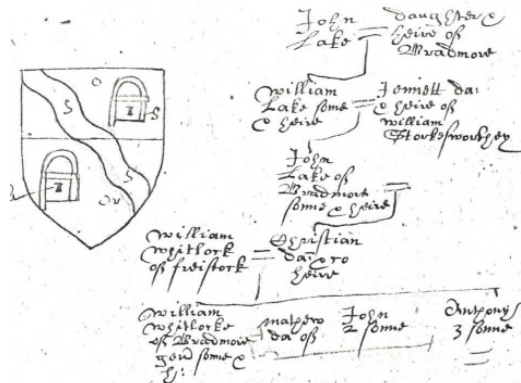 John
Lake
daughter &
heire of
Bradmore
William
Lake sonne
& heire
Jennett da:
& heire of
William
Storkesworthey
John
Lake of
Bradmore
sonne & heire
William
Whitlock
of Freistock
Christian
da: & co
heire
William
Whitlocke
of Bradmore
gen sonne &
h:
mathew
da of
John
2 sonne
Anthony
3 sonne
O
S
S
S
Or